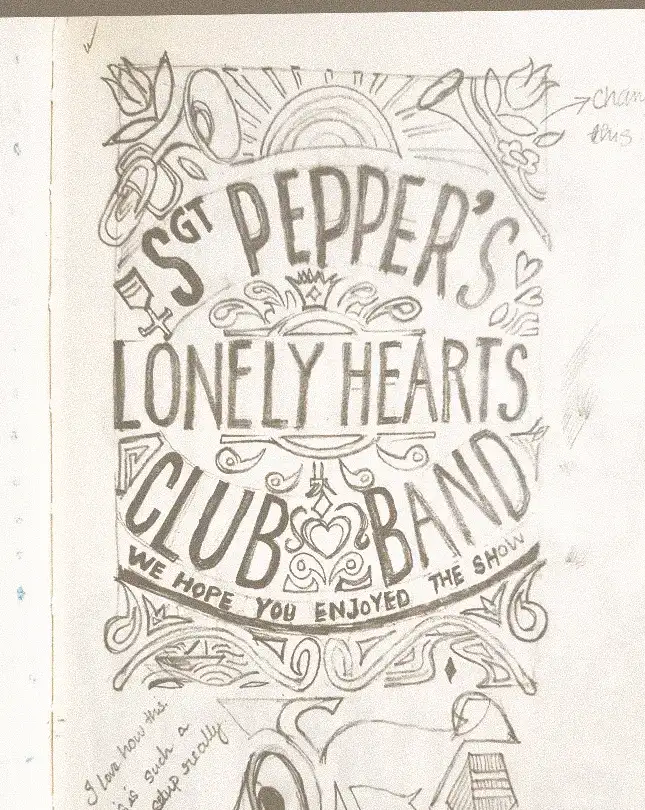 chan
this
SGT PEPPER'S
LONELY HEARTS
CLUB BAND
WE HOPE YOU ENJOYED THE SHOW
I love how this
is such a
really